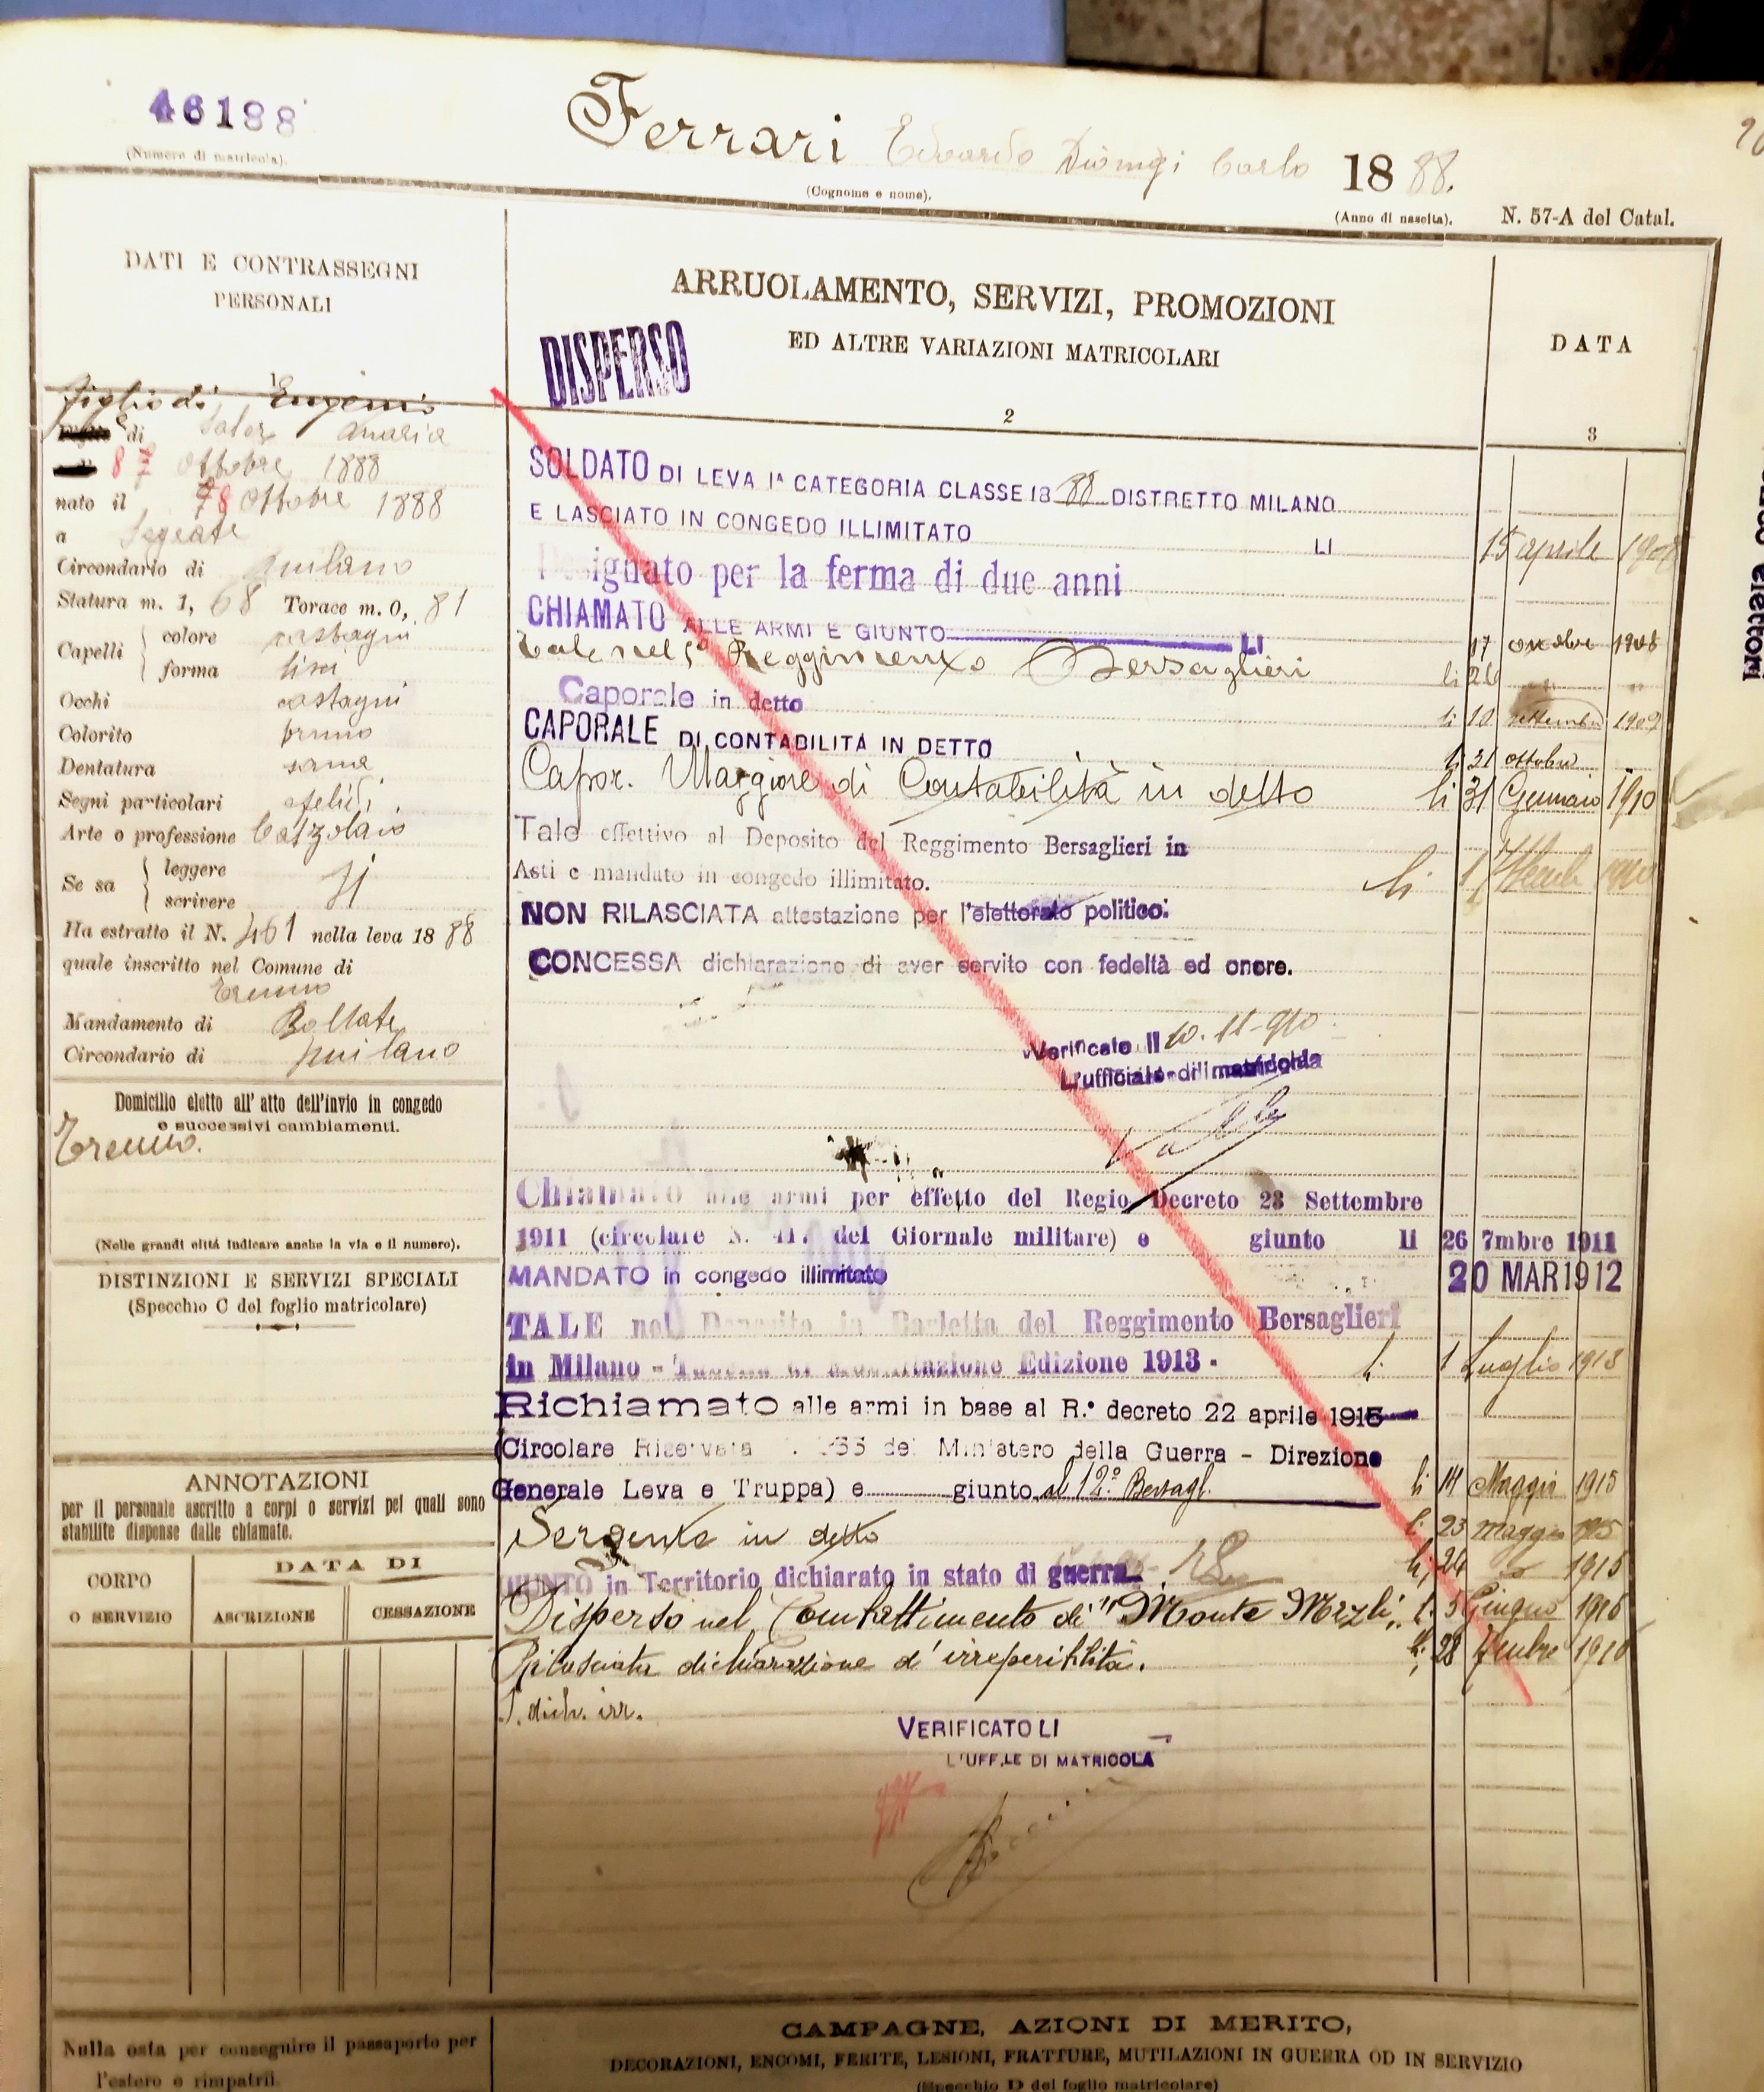 46188
(Numero di matricola).
Ferrari Edoardo Dionigi Carlo 1888.
(Cognome e nome).
(Anno di nascita).
N. 57-A del Catal.
DATI E CONTRASSEGNI
PERSONALI
figlio di Eugenio
di Maria
8 7 Ottobre 1888
nato il 78 Ottobre 1888
a Segrate
Circondario di Milano
Statura m. 1, 68 Torace m. 0, 81
Capelli colore castagni
forma lisci
Occhi castagni
Colorito bruno
Dentatura sana
Segni particolari
Arte o professione Calzolaio
Se sa leggere
scrivere
Si
Ha estratto il N. 461 nella leva 1888
quale inscritto nel Comune di
Trenno
Mandamento di Bollate
Circondario di Milano
Domicilio eletto all'atto dell'invio in congedo
e successivi cambiamenti.
Trenno.
(Nelle grandi città indicare anche la via e il numero).
DISTINZIONI E SERVIZI SPECIALI
(Specchio C del foglio matricolare)
ANNOTAZIONI
per il personale ascritto a corpi o servizi pei quali sono
stabilite dispense dalle chiamate.
CORPO
O SERVIZIO
DATA DI
ASCRIZIONE
CESSAZIONE
Nulla osta per conseguire il passaporto per
l'estero e rimpatrii
ARRUOLAMENTO, SERVIZI, PROMOZIONI
ED ALTRE VARIAZIONI MATRICOLARI
DATA
DISPERSO
2
3
SOLDATO DI LEVA 1ª CATEGORIA CLASSE 1888 DISTRETTO MILANO
E LASCIATO IN CONGEDO ILLIMITATO LI 15 aprile 1908
Designato per la ferma di due anni
CHIAMATO ALLE ARMI E GIUNTO LI 17 ottobre 1908
Tale nel 5º Reggimento Bersaglieri li 26 " "
Caporale in detto li 10 settembre 1909
CAPORALE DI CONTABILITÀ IN DETTO li 31 ottobre "
Capor. Maggiore di Contabilità in detto li 31 Gennaio 1910
Tale effettivo al Deposito del Reggimento Bersaglieri in
Asti e mandato in congedo illimitato. li
NON RILASCIATA attestazione per l'elettorato politico.
CONCESSA dichiarazione di aver servito con fedeltà ed onore.
Verificato li 10-11-910
L'ufficiale di matricola
Chiamato alle armi per effetto del Regio Decreto 23 Settembre
1911 (circolare N. 41. del Giornale militare) e giunto li 26 7mbre 1911
MANDATO in congedo illimitato 20 MAR 1912
TALE nel Deposito in Barletta del Reggimento Bersaglieri
in Milano - Tabella di Mobilitazione Edizione 1913. li 1 Luglio 1913
Richiamato alle armi in base al R.º decreto 22 aprile 1915
(Circolare Riservata del Ministero della Guerra - Direzione
Generale Leva e Truppa) e giunto al 12º Bersagl. li 14 Maggio 1915
Sergente in detto li 23 maggio 1915
GIUNTO in Territorio dichiarato in stato di guerra li 24 1915
Disperso nel Combattimento di "Monte Mrzli" li 5 Giugno 1915
Rilasciata dichiarazione d'irreperibilità. li 28
dich. irr.
VERIFICATO LI
L'UFF.LE DI MATRICOLA
CAMPAGNE, AZIONI DI MERITO,
DECORAZIONI, ENCOMI, FERITE, LESIONI, FRATTURE, MUTILAZIONI IN GUERRA OD IN SERVIZIO
(Specchio D del foglio matricolare)